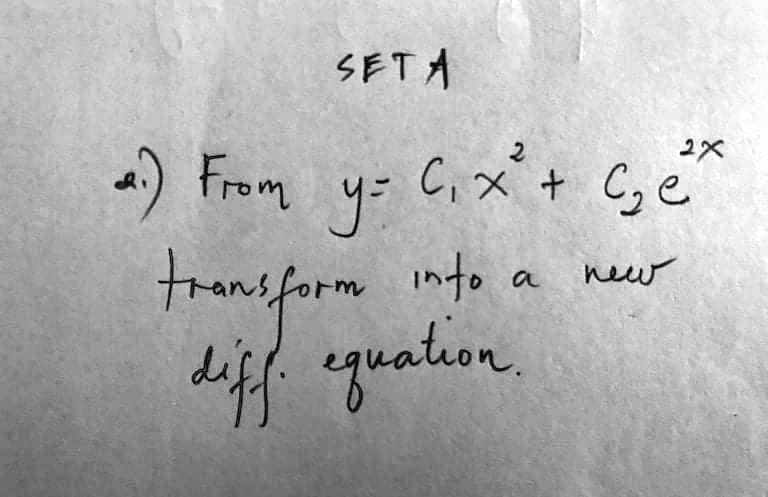 SET A
a.) From y = C₁x² + C₂e²ˣ
transform into a new
diff. equation.